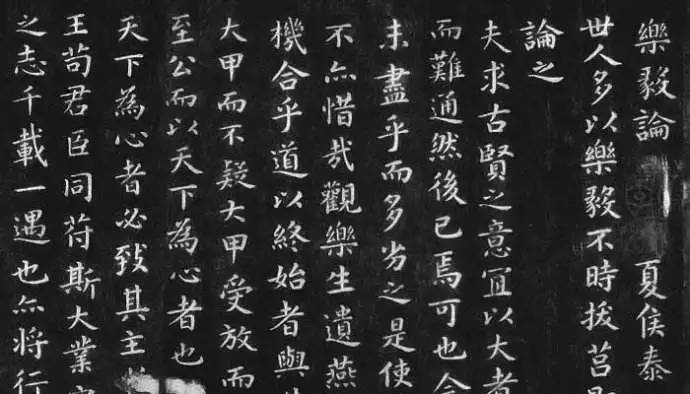 樂毅論 夏侯泰
世人多以樂毅不時拔莒即
論之
夫求古賢之意宜以大者
而難通然後已焉可也今
未盡乎而多劣之是使
不亦惜哉觀樂生遺燕
機合乎道以終始者與
大甲而不疑大甲受放而
至公而以天下為心者也
天下為心者必致其主
王苟君臣同符斯大業
之志千載一遇也亦將行